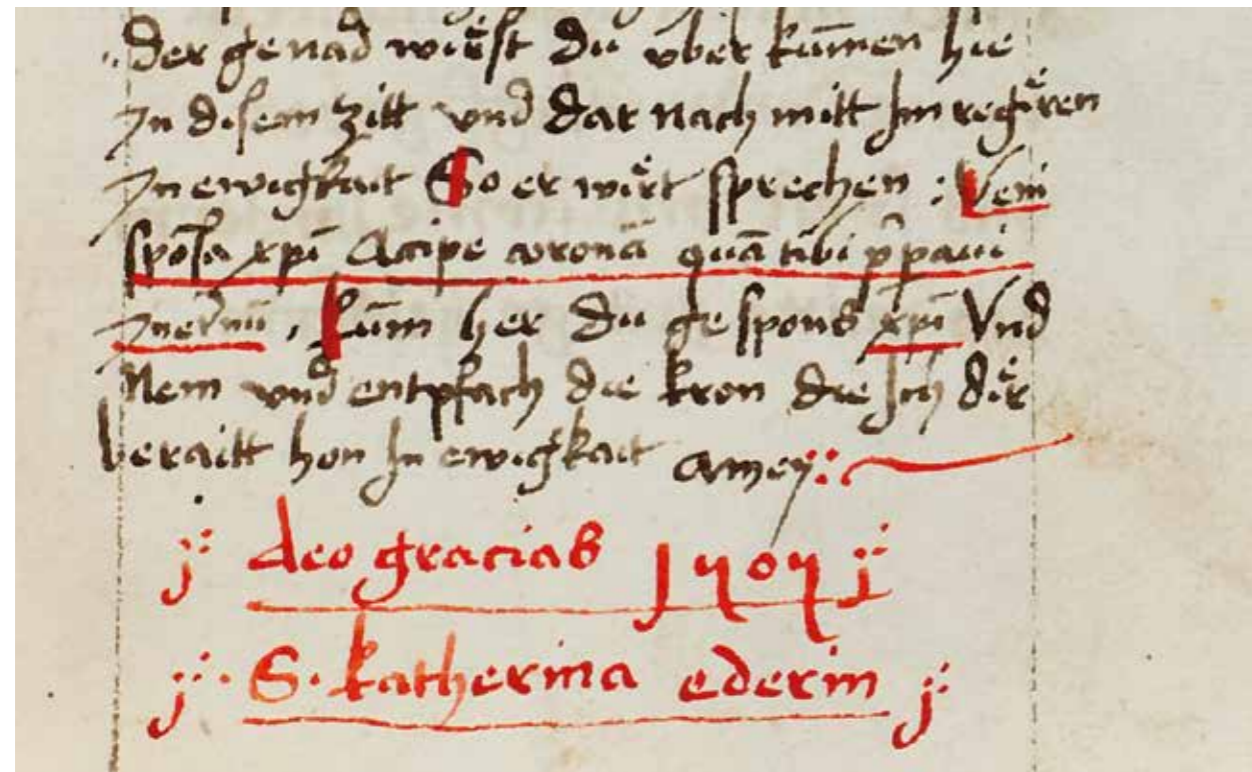 der genad wirͤst du v̈ber kum̄en hie
Jn disem zitt vnd dar nach mitt Jm regirͤen
Jn ewigkait So er wirͤt sprechen : Veni
spōsa xp̄i Acipe coronā quā tibi p̄paui
Jneternū . Kum̄ her du gespons xp̄i Vnd
Nem vnd entpfach die kron die Jch dirͤ
beraitt hon Jn ewigkait amen :
deo gracias 1505
S. katherina ederin